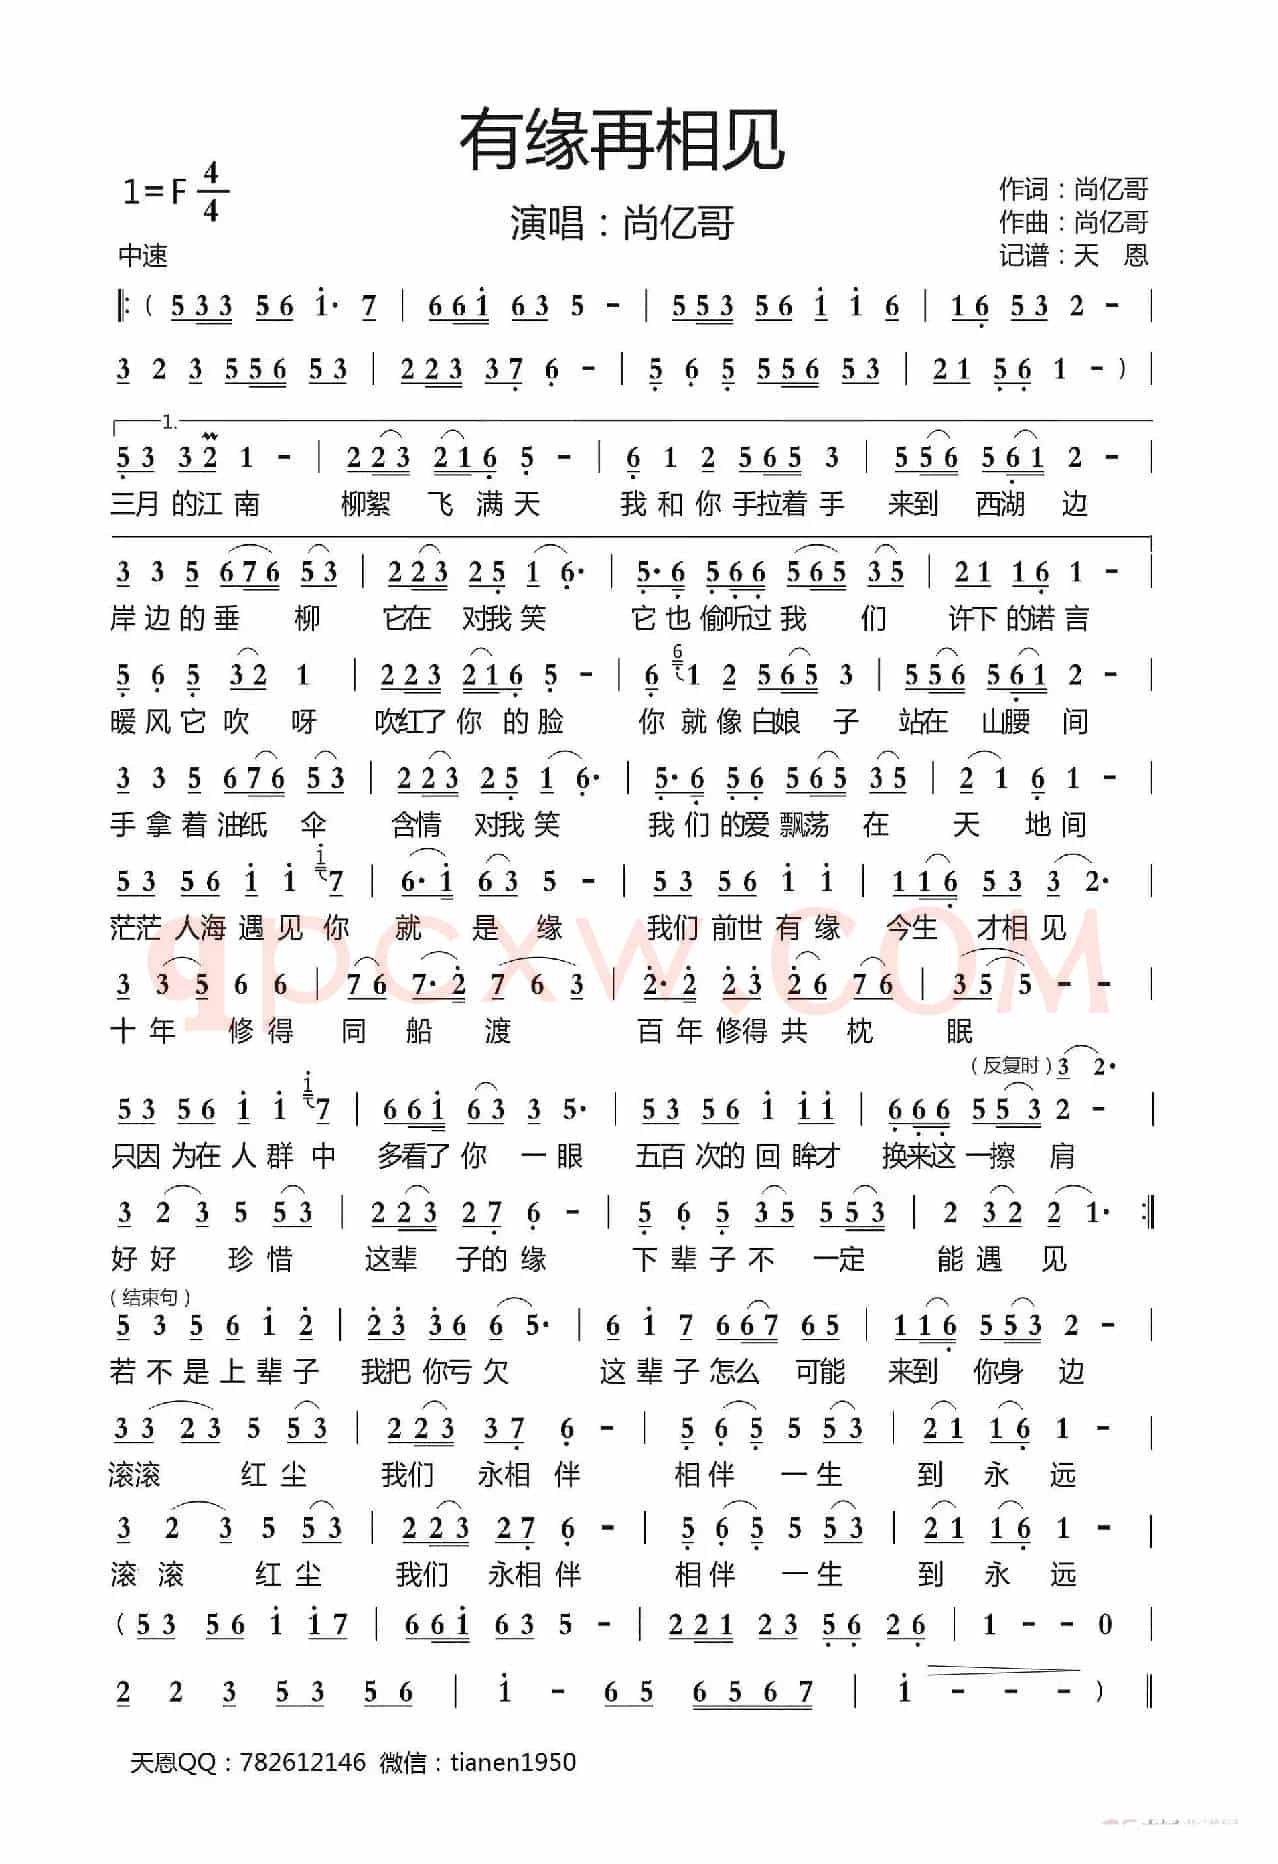 有缘再相见
1=F 4/4
演唱：尚亿哥
作词：尚亿哥
作曲：尚亿哥
中速
记谱：天 恩
‖: ( 5 3 3 5 6 i· 7 | 6 6 i 6 3 5 - | 5 5 3 5 6 i i 6 | 1 6 5 3 2 - |
3 2 3 5 5 6 5 3 | 2 2 3 3 7 6 - | 5 6 5 5 5 6 5 3 | 2 1 5 6 1 - ) |
1.
5 3 3 2 1 - | 2 2 3 2 1 6 5 - | 6 1 2 5 6 5 3 | 5 5 6 5 6 1 2 - |
三月的江南 柳絮 飞 满天 我和你手拉着手 来到 西湖 边
3 3 5 6 7 6 5 3 | 2 2 3 2 5 1 6· | 5· 6 5 6 6 5 6 5 3 5 | 2 1 1 6 1 - |
岸边的垂 柳 它在 对我笑 它也偷听过我 们 许下的诺言
5 6 5 3 2 1 | 2 2 3 2 1 6 5 - | 6 6 1 2 5 6 5 3 | 5 5 6 5 6 1 2 - |
暖风它吹 呀 吹红了你 的脸 你就像白娘 子 站在 山腰 间
3 3 5 6 7 6 5 3 | 2 2 3 2 5 1 6· | 5· 6 5 6 5 6 5 3 5 | 2 1 6 1 - |
手拿着油纸 伞 含情 对我笑 我们的爱飘荡 在 天 地间
5 3 5 6 i i i 7 | 6· i 6 3 5 - | 5 3 5 6 i i | 1 1 6 5 3 3 2· |
茫茫人海遇见你 就 是缘 我们前世有缘 今生 才相见
qpcxw.COM
3 3 5 6 6 | 7 6 7· 2 7 6 3 | 2· 2 2 3 2 6 7 6 | 3 5 5 - - |
十年 修得 同 船 渡 百年修得共 枕 眠
（反复时）3 2·
5 3 5 6 i i i 7 | 6 6 i 6 3 3 5· | 5 3 5 6 i i i | 6 6 6 5 5 3 2 - |
只因为在人群中 多看了你 一眼 五百次的回眸才 换来这一擦 肩
3 2 3 5 5 3 | 2 2 3 2 7 6 - | 5 6 5 3 5 5 5 3 | 2 3 2 2 1· :‖
好好 珍惜 这辈 子的缘 下辈子不 一定 能遇 见
（结束句）
5 3 5 6 i 2 | 2 3 3 6 6 5· | 6 i 7 6 6 7 6 5 | 1 1 6 5 5 3 2 - |
若不是上辈子 我把你亏欠 这辈子怎么 可能 来到 你身 边
3 3 2 3 5 5 3 | 2 2 3 3 7 6 - | 5 6 5 5 5 3 | 2 1 1 6 1 - |
滚滚 红尘 我们 永相伴 相伴 一生 到 永 远
3 2 3 5 5 3 | 2 2 3 2 7 6 - | 5 6 5 5 5 3 | 2 1 1 6 1 - |
滚滚 红尘 我们 永相伴 相伴 一生 到 永 远
( 5 3 5 6 i i 7 | 6 6 i 6 3 5 - | 2 2 1 2 3 5 6 2 6 | 1 - - 0 |
2 2 3 5 3 5 6 | i - 6 5 6 5 6 7 | i - - - ) ‖
天恩QQ：782612146 微信：tianen1950